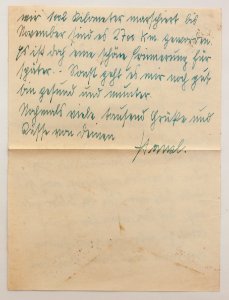 wir 1000 Kilometer marschiert bis
November sind es 2700 km geworden.
Es ist doch eine schöne Erinnerung für
später. Sonst geht es mir noch gut
bin gesund und munter.
Nochmals viele tausend Grüße und
Küsse von deinem